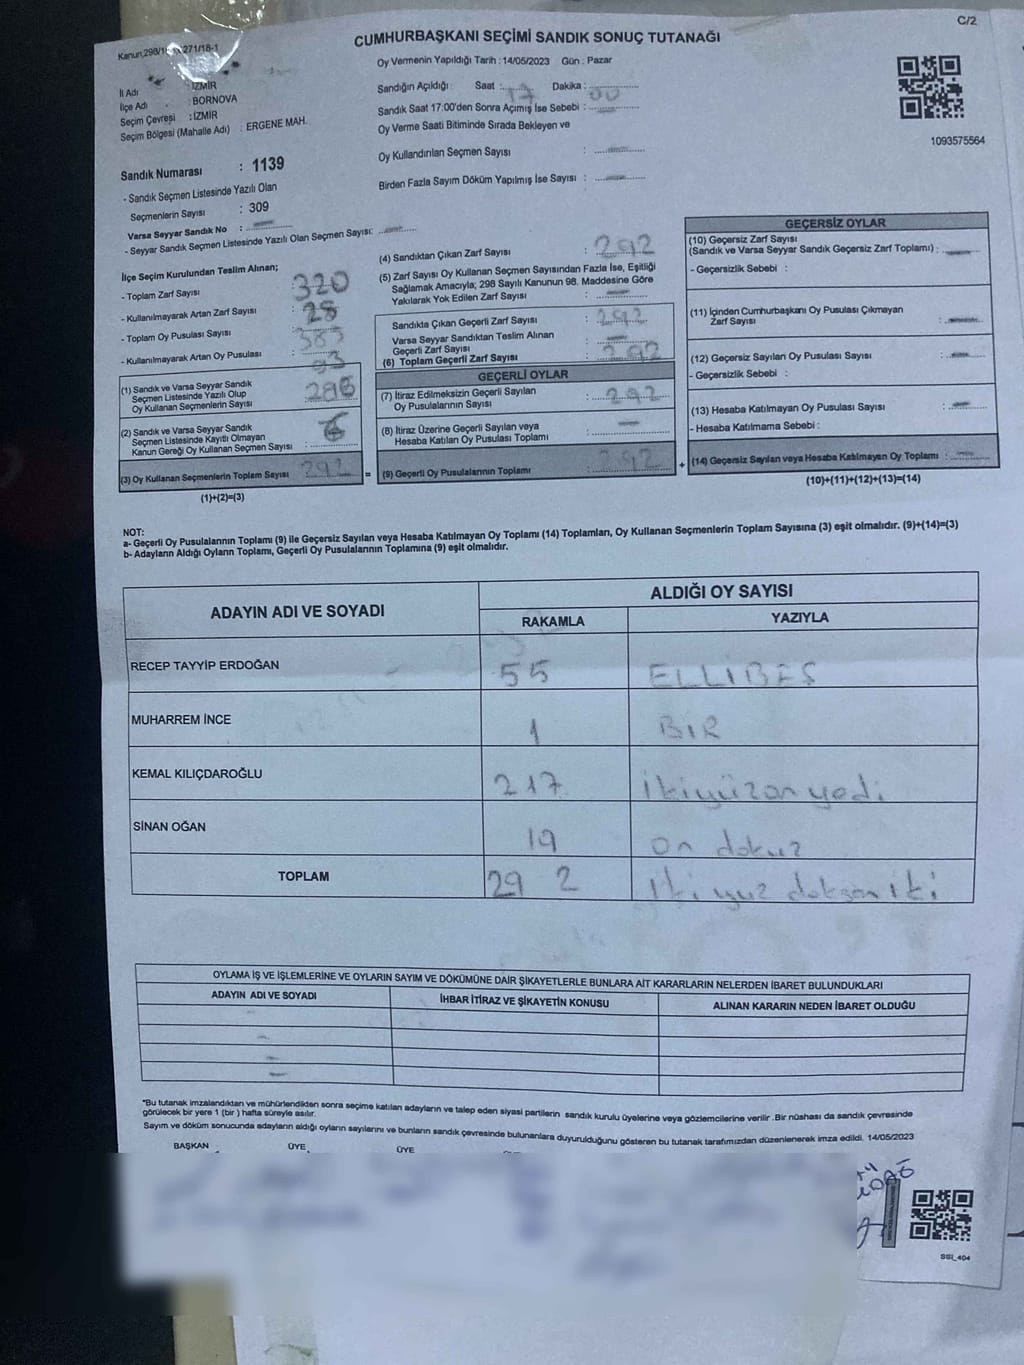 C/2
Kanun:298/1 271/18-1
CUMHURBAŞKANI SEÇİMİ SANDIK SONUÇ TUTANAĞI
Oy Vermenin Yapıldığı Tarih : 14/05/2023 Gün : Pazar
İl Adı : İZMİR
İlçe Adı : BORNOVA
Seçim Çevresi : İZMİR
Seçim Bölgesi (Mahalle Adı) : ERGENE MAH.
Sandık Numarası : 1139
- Sandık Seçmen Listesinde Yazılı Olan
Seçmenlerin Sayısı : 309
Varsa Seyyar Sandık No :
- Seyyar Sandık Seçmen Listesinde Yazılı Olan Seçmen Sayısı:
Sandığın Açıldığı Saat : 17 Dakika : 00
Sandık Saat 17:00'den Sonra Açımış İse Sebebi :
Oy Verme Saati Bitiminde Sırada Bekleyen ve
Oy Kullandırılan Seçmen Sayısı :
Birden Fazla Sayım Döküm Yapılmış İse Sayısı :
1093575564
İlçe Seçim Kurulundan Teslim Alınan;
- Toplam Zarf Sayısı : 320
- Kullanılmayarak Artan Zarf Sayısı : 28
- Toplam Oy Pusulası Sayısı : 385
- Kullanılmayarak Artan Oy Pusulası : 93
(1) Sandık ve Varsa Seyyar Sandık
Seçmen Listesinde Yazılı Olup
Oy Kullanan Seçmenlerin Sayısı : 286
(2) Sandık ve Varsa Seyyar Sandık
Seçmen Listesinde Kayıtlı Olmayan
Kanun Gereği Oy Kullanan Seçmen Sayısı : 6
(3) Oy Kullanan Seçmenlerin Toplam Sayısı : 292 =
(1)+(2)=(3)
(4) Sandıktan Çıkan Zarf Sayısı : 292
(5) Zarf Sayısı Oy Kullanan Seçmen Sayısından Fazla İse, Eşitliği
Sağlamak Amacıyla; 298 Sayılı Kanunun 98. Maddesine Göre
Yakılarak Yok Edilen Zarf Sayısı :
Sandıkta Çıkan Geçerli Zarf Sayısı : 292
Varsa Seyyar Sandıktan Teslim Alınan
Geçerli Zarf Sayısı :
(6) Toplam Geçerli Zarf Sayısı : 292
GEÇERLİ OYLAR
(7) İtiraz Edilmeksizin Geçerli Sayılan
Oy Pusulalarının Sayısı : 292
(8) İtiraz Üzerine Geçerli Sayılan veya
Hesaba Katılan Oy Pusulası Toplamı :
(9) Geçerli Oy Pusulalarının Toplamı : 292 +
GEÇERSİZ OYLAR
(10) Geçersiz Zarf Sayısı
(Sandık ve Varsa Seyyar Sandık Geçersiz Zarf Toplamı) :
- Geçersizlik Sebebi :
(11) İçinden Cumhurbaşkanı Oy Pusulası Çıkmayan
Zarf Sayısı :
(12) Geçersiz Sayılan Oy Pusulası Sayısı :
- Geçersizlik Sebebi :
(13) Hesaba Katılmayan Oy Pusulası Sayısı :
- Hesaba Katılmama Sebebi :
(14) Geçersiz Sayılan veya Hesaba Katılmayan Oy Toplamı :
(10)+(11)+(12)+(13)=(14)
NOT:
a- Geçerli Oy Pusulalarının Toplamı (9) ile Geçersiz Sayılan veya Hesaba Katılmayan Oy Toplamı (14) Toplamları, Oy Kullanan Seçmenlerin Toplam Sayısına (3) eşit olmalıdır. (9)+(14)=(3)
b- Adayların Aldığı Oyların Toplamı, Geçerli Oy Pusulalarının Toplamına (9) eşit olmalıdır.
ADAYIN ADI VE SOYADI ALDIĞI OY SAYISI
RAKAMLA YAZIYLA
RECEP TAYYİP ERDOĞAN 55 ELLİBEŞ
MUHARREM İNCE 1 BİR
KEMAL KILIÇDAROĞLU 217 ikiyüzon yedi
SİNAN OĞAN 19 on dokuz
TOPLAM 29 2 iki yüz doksan iki
OYLAMA İŞ VE İŞLEMLERİNE VE OYLARIN SAYIM VE DÖKÜMÜNE DAİR ŞİKAYETLERLE BUNLARA AİT KARARLARIN NELERDEN İBARET BULUNDUKLARI
ADAYIN ADI VE SOYADI İHBAR İTİRAZ VE ŞİKAYETİN KONUSU ALINAN KARARIN NEDEN İBARET OLDUĞU
"Bu tutanak imzalandıktan ve mühürlendikten sonra seçime katılan adayların ve talep eden siyasi partilerin sandık kurulu üyelerine veya gözlemcilerine verilir .Bir nüshası da sandık çevresinde
görülecek bir yere 1 (bir ) hafta süreyle asılır.
Sayım ve döküm sonucunda adayların aldığı oyların sayılarını ve bunların sandık çevresinde bulunanlara duyurulduğunu gösteren bu tutanak tarafımızdan düzenlenerek imza edildi. 14/05/2023
BAŞKAN ÜYE ÜYE
SSI_404